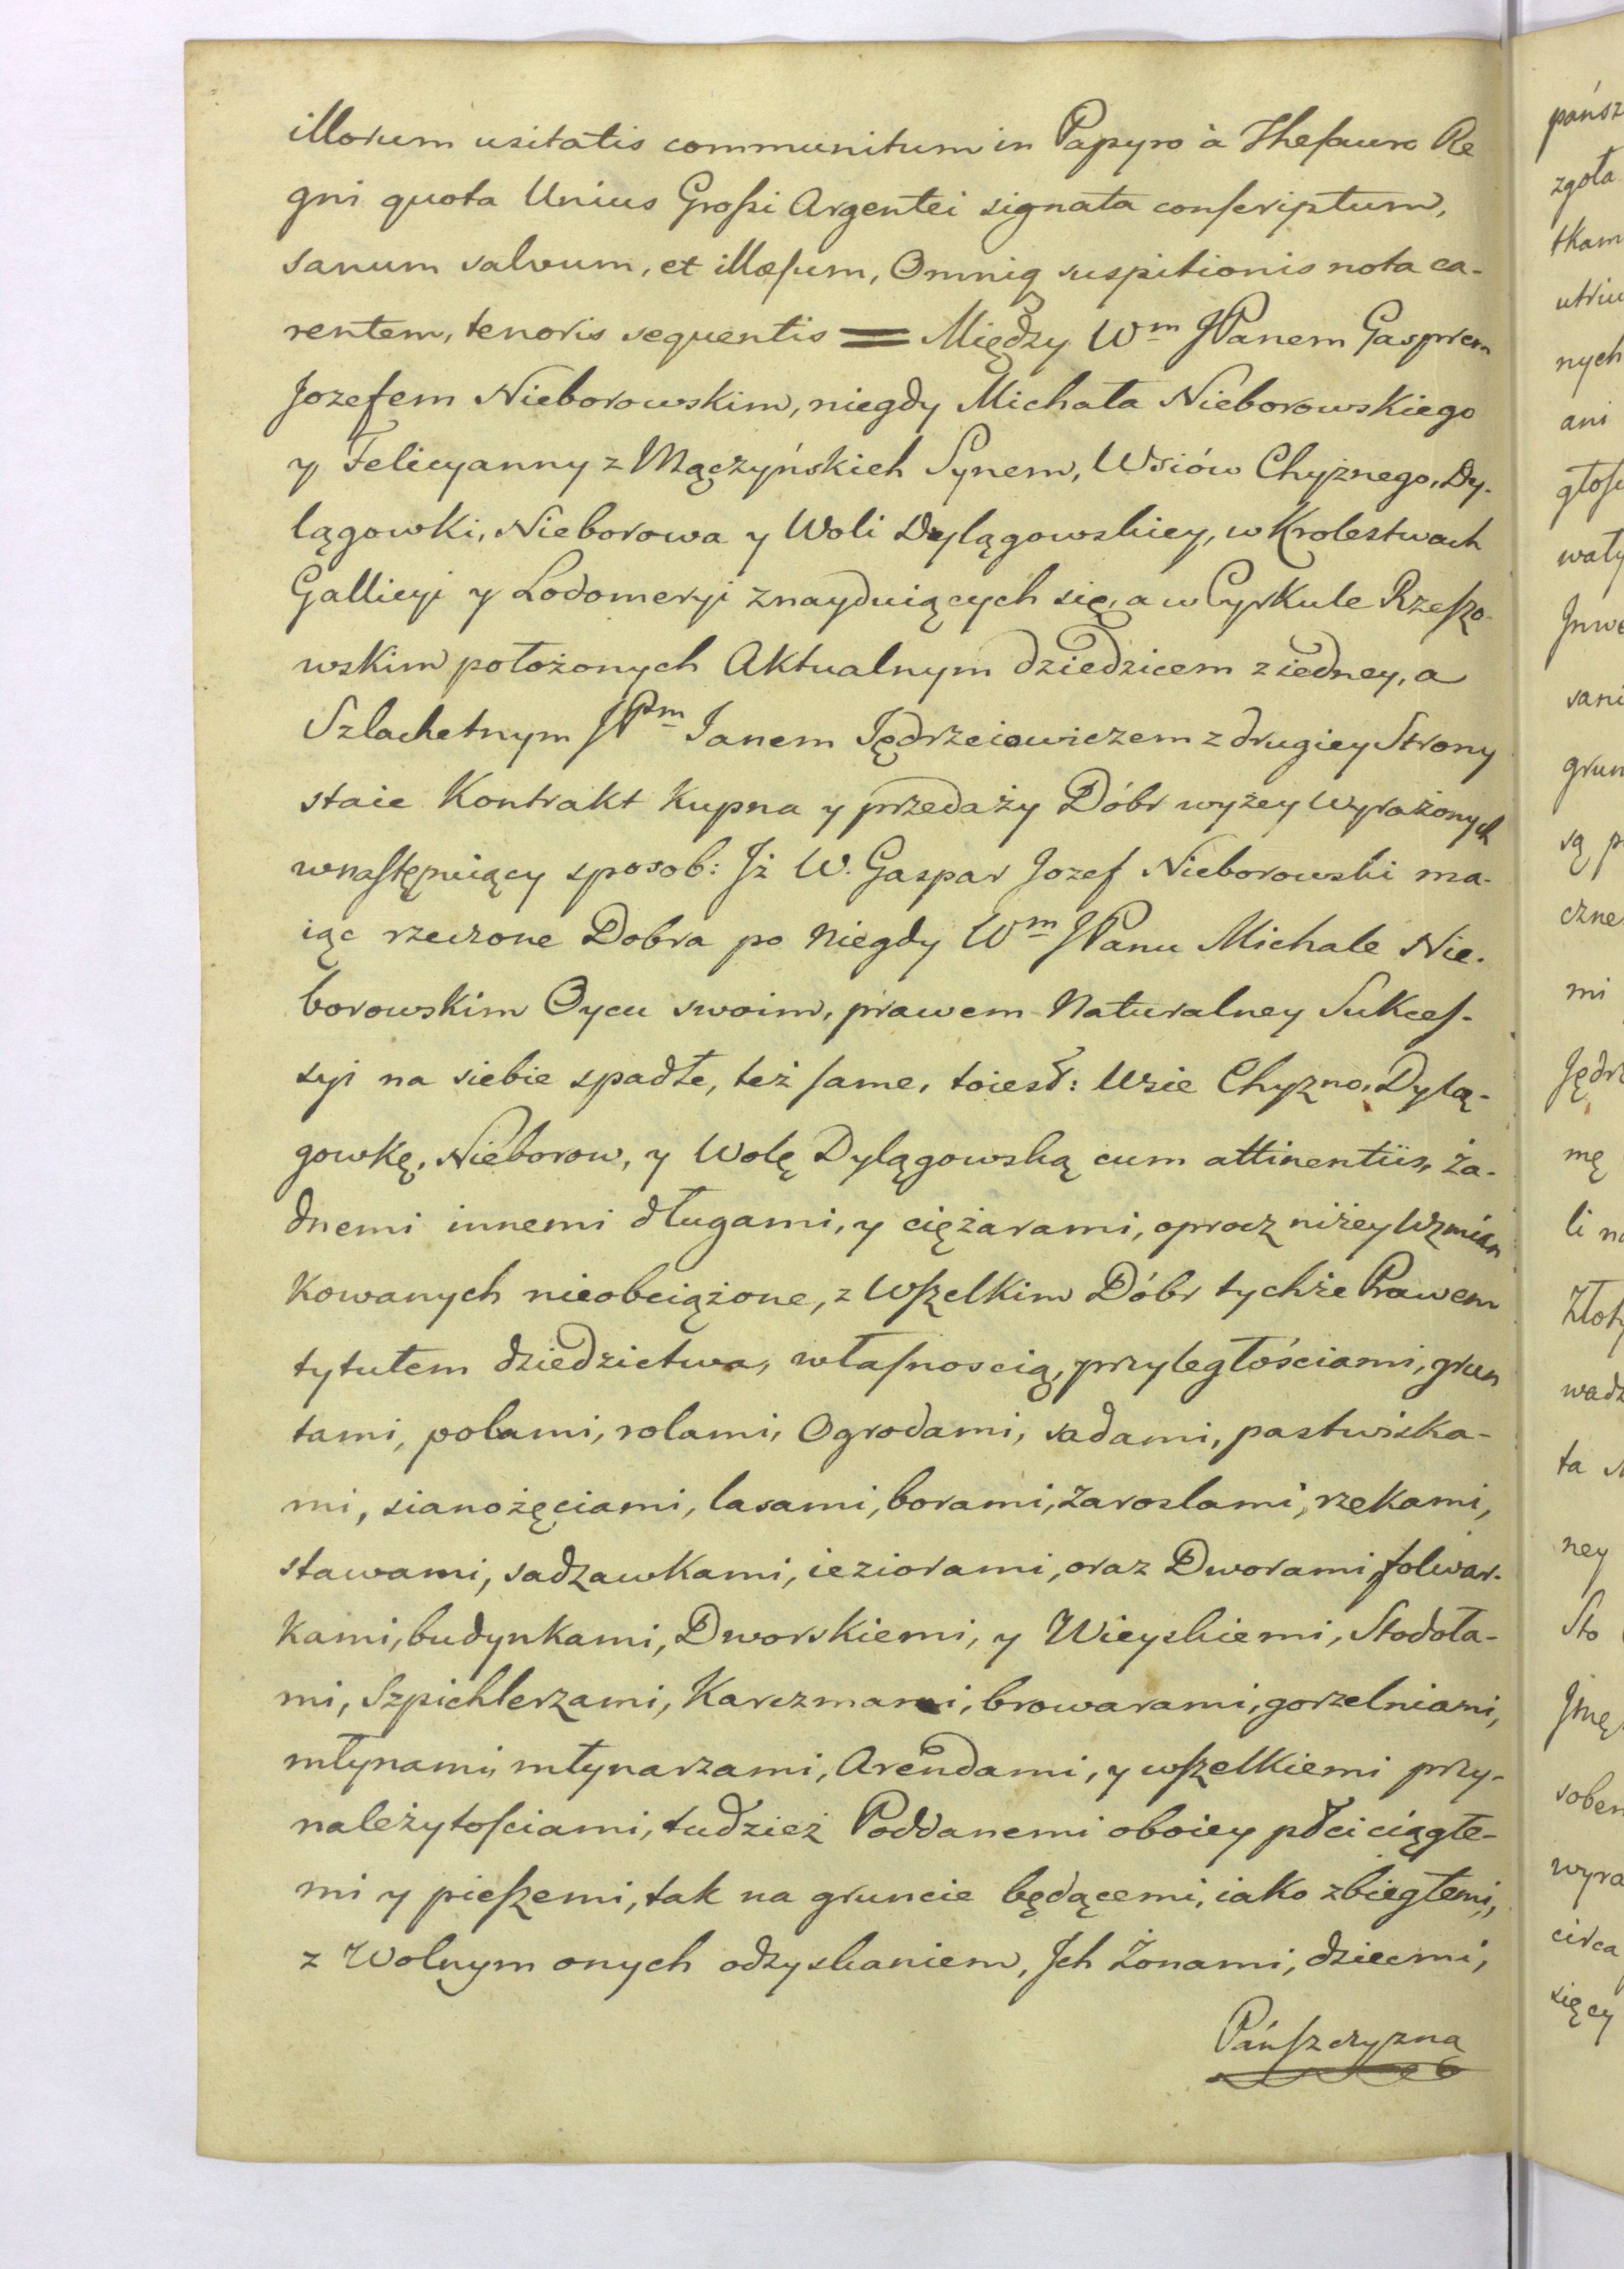 illorum usitatis communitum in Papyro à Thesauro Re
gni quota Unius Grossi Argentei signata conscriptum,
sanum salvum, et illæsum, Omniq suspitionis nota ca-
rentem, tenoris sequentis = Między Wm JPanem Gasprem
Jozefem Nieborowskim, niegdy Michała Nieborowskiego
y Felicyanny z Mączyńskich Synem, Wsiów Chyżnego, Dy-
lągowki, Nieborowa y Woli Dylągowskiey, w Krolestwach
Gallicyi y Lodomeryi znayduiących się, a w Cyrkule Rzeszo-
wskim położonych Aktualnym dziedzicem z iedney, a
Szlachetnym JPm Janem Jędrzeiowiczem z drugiey Strony
staie Kontrakt Kupna y przedaży Dóbr wyżey wyrażonych
wnastępuiący sposob: Jż W. Gaspar Jozef Nieborowski ma-
iąc rzeczone Dobra po Niegdy Wm JPanu Michale Nie-
borowskim Oycu swoim, prawem Naturalney Sukces-
syi na siebie spadłe, też same, toiest: Wsie Chyzno, Dylą-
gowkę, Nieborow, y Wolę Dylągowską cum attinentiis, ża-
dnemi innemi długami, y ciężarami, oprocz niżey Wzmian
kowanych nieobciążone, z Wszelkim Dóbr tychże Prawem
tytułem dziedzictwa, własnoscią, przyległościami, grun
tami, polami, rolami, Ogrodami, sadami, pastwiska-
mi, sianożęciami, lasami, borami, zaroslami, rzekami,
stawami, sadzawkami, ieziorami, oraz Dworami, folwar-
kami, budynkami, Dworskiemi, y Wieyskiemi, Stodoła-
mi, Szpichlerzami, Karczmami, browarami, gorzelniami,
młynami, młynarzami, Arendami, y wszelkiemi przy-
należytościami, tudzież Poddanemi oboiey płci ciągłe-
mi y pieszemi, tak na gruncie będącemi, iako zbiegłemi,
z Wolnym onych odzyskaniem, Jch Żonami, dziecmi,
Pańszczyzną
pańsz
zgoła
tkam
utriu
nych
ani
głos
wały
Jnwe
sani
grun
są p
czne
mi
Jędrz
mę
li na
Złoty
wadz
ta
ney
Sto
Jmę
soben
wyra
circa
sięcy